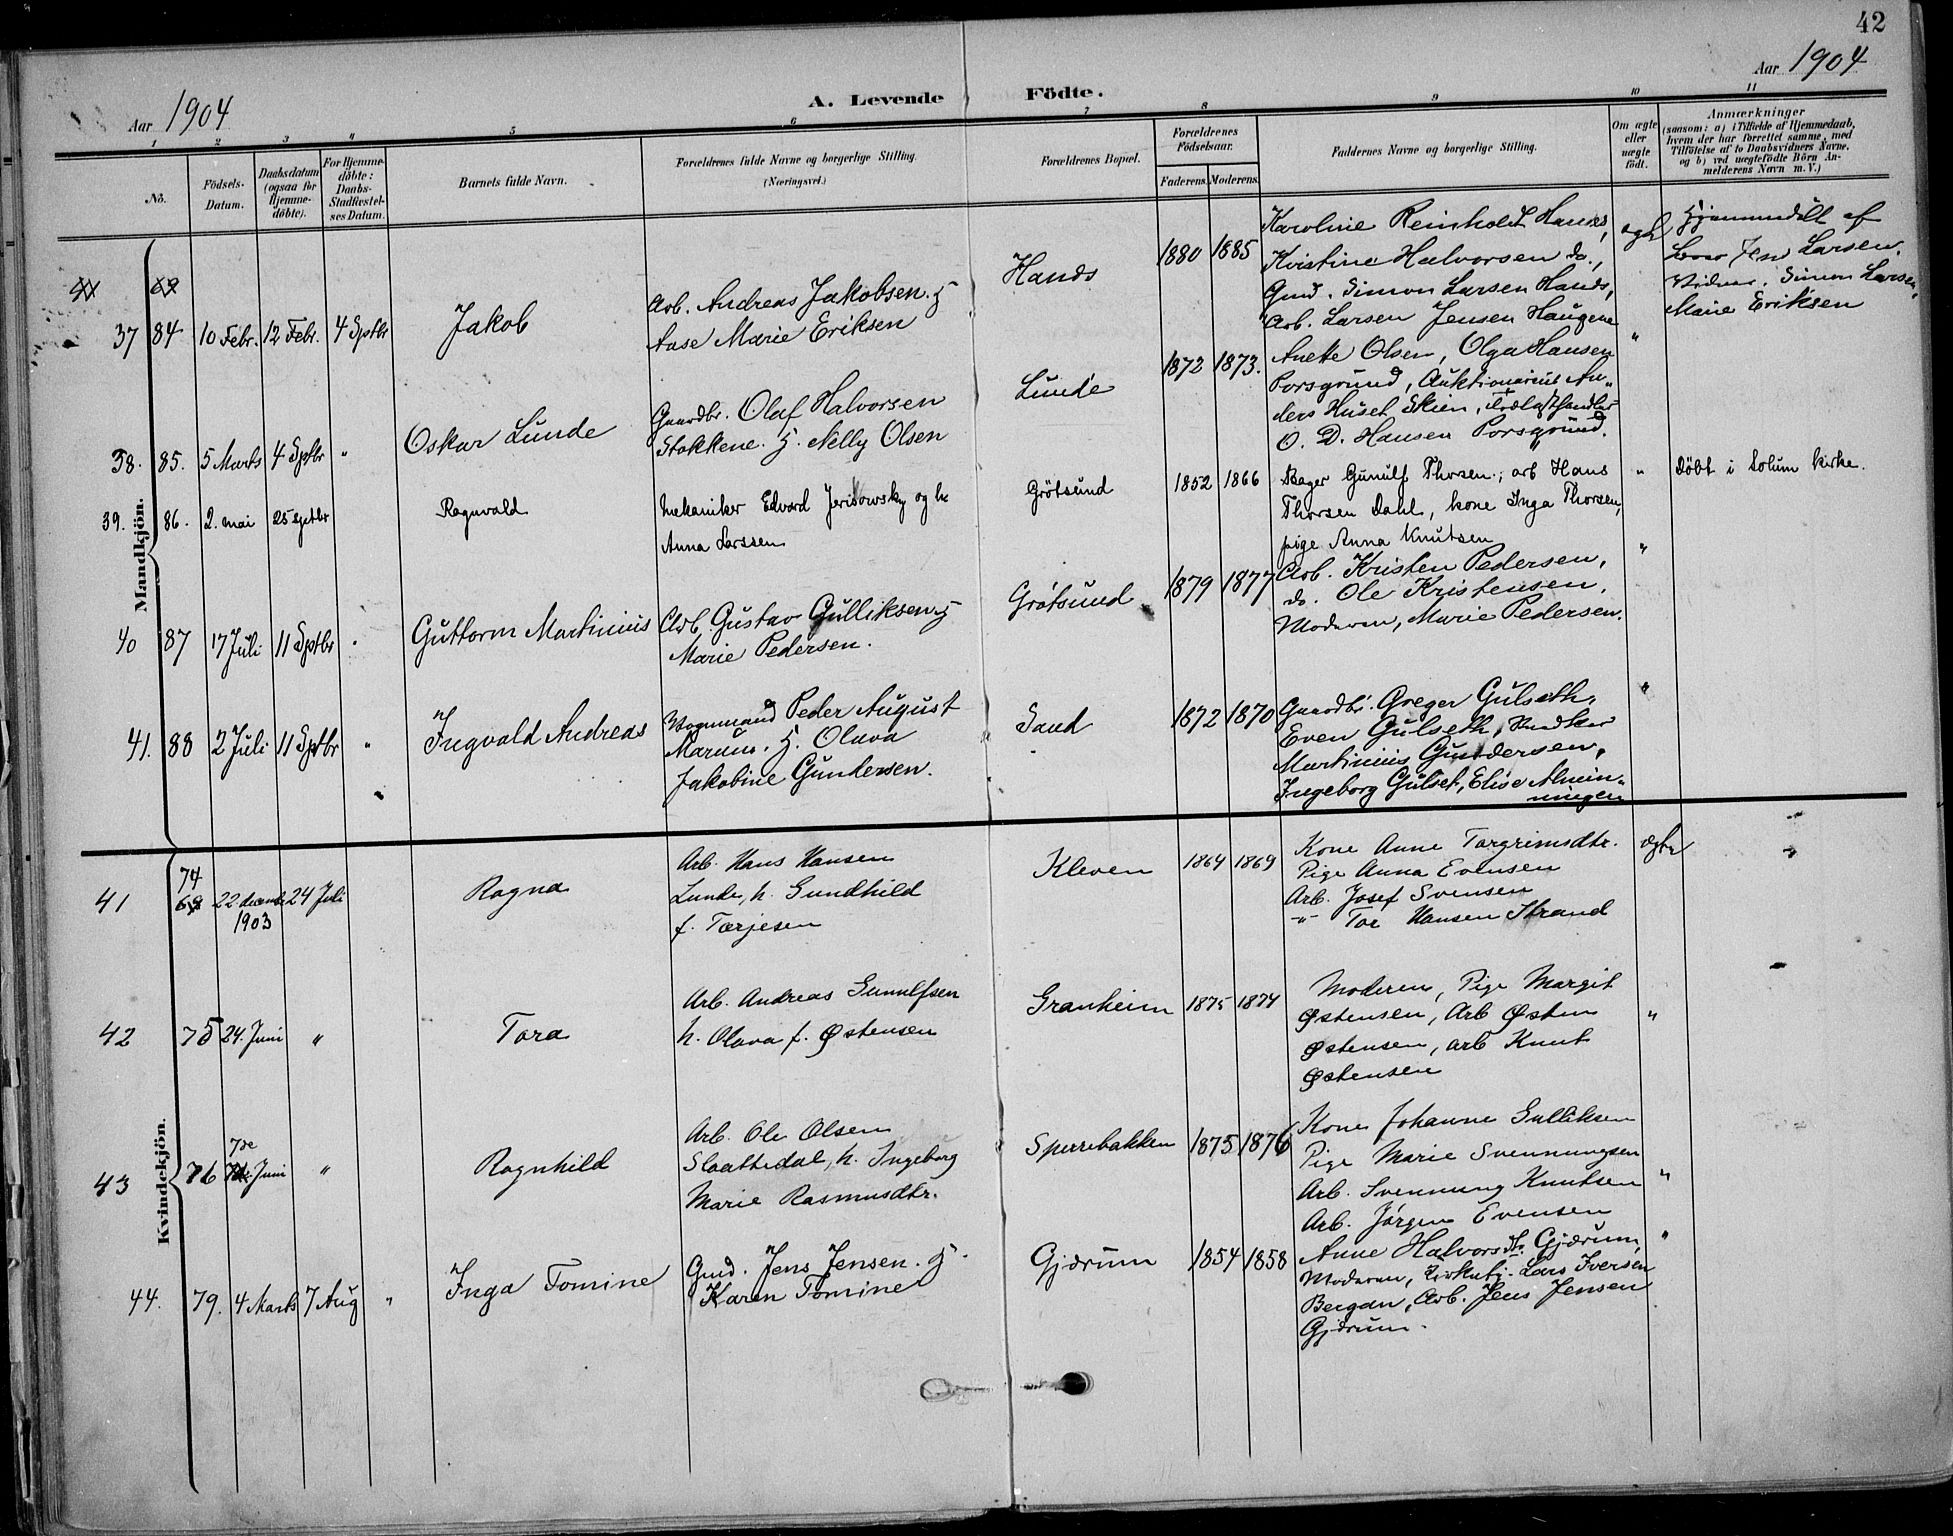 42
Aar 1904
Aar 1904
A. Levende Födte.
1 2 3 4 5 6 7 8 9 10 11
No.
Födsels-
Datum.
Daabsdatum
(ogsaa for
Hjemme-
döbte).
For Hjemme-
döbte:
Daabs-
Stadfæstel-
ses Datum.
Barnets fulde Navn.
Forældrenes fulde Navne og borgerlige Stilling.
(Næringsvei.)
Forældrenes Bopæl.
Forældrenes
Födselsaar.
Faderens. Moderens.
Faddernes Navne og borgerlige Stilling.
Om ægte
eller
uægte
födt.
Anmærkninger
(saasom: a) i Tilfælde af Hjemmedaab,
hvem der har forrettet samme, med
Tilföielse af to Daabsvidners Navne,
og b) ved uægtefödte Börn An-
melderens Navn m. V.)
Mandkjön.
37 84 10 Febr. 12 Febr. 4 Sptbr
Jakob
Arb. Andreas Jakobsen. H
Aase Marie Eriksen
Hands
1880 1885
Karoline Reinholdt Hands,
Kristine Halvorsen do.,
Gmd. Simon Larsen Hands,
Arb. Larsen Jensen Haugene
ægte
Hjemmedöbt af
Jens Larsen.
Vidner. Simon Larsen,
Marie Eriksen
38. 85. 5 Marts 4 Sptbr "
Oskar Lunde
Gaardbr. Olaf Halvorsen
Stokkene. H. Nelly Olsen
Lunde
1872 1873.
Anette Olsen, Olga Hansen
Porsgrund, Auktionarius An-
ders Huset Skien, Trælasthandler
O. D. Hansen Porsgrund.
"
39. 86. 2. mai 25 septbr
Ragnvald
Mekaniker Edvard Jerisowsky og h.
Anna Larssen
Grötsund
1852 1866
Bager Gunulf Thorsen; arb Hans
Thorsen Dahl, kone Inga Thorsen,
pige Anna Knutsen
"
Döbt i Solum kirke.
40 87 17 Juli 11 Sptbr "
Guttorm Martinius
Arb. Gustav Gulliksen H
Marie Pedersen.
Grötsund
1879 1877
Arb. Kristen Pedersen,
do. Ole Kristensen,
Moderen, Marie Pedersen.
"
41. 88 2 Juli 11 Sptbr "
Ingvald Andreas
Vognmand Peder August
Marius. H. Olava
Jakobine Gundersen.
Sand
1872 1870
Gaardbr. Greger Gulseth,
Even Gulseth, Snedker
Martinius Gundersen,
Ingeborg Gulset, Elise Almin-
ningen
"
Kvindekjön.
41 74 22 decemb 24 Juli
1903
Ragna
Arb. Hans Hansen
Lunde, h. Gundhild
f. Tærjesen
Kleven
1864 1869
Kone Anne Torgrimsdtr.
Pige Anna Evensen
Arb. Josef Svensen
-"- Tor Hansen Strand
ægte
42 75 24. Juni "
Tora
Arb. Andreas Gunulfsen
h. Olava f. Østensen
Granheim
1875 1874
Moderen, Pige Margit
Østensen, Arb Østen
Østensen, arb Knut
Østensen
"
43 76 7de Juni "
Ragnhild
Arb. Ole Olsen
Slaattedal, h. Ingeborg
Marie Rasmusdtr.
Sperrebakken
1875 1876
Kone Johanne Gulliksen
Pige Marie Svennungsen
Arb. Svennung Knutsen
Arb. Jørgen Evensen
"
44. 79. 4 Marts 7 Aug "
Inga Tomine
Gmd. Jens Jensen. H
Karen Tomine
Gjærum
1854 1858
Anne Halvorsdtr. Gjærum,
Moderen, Kirketj. Lars Iversen
Bergan, Arb. Jens Jensen
Gjærum.
"